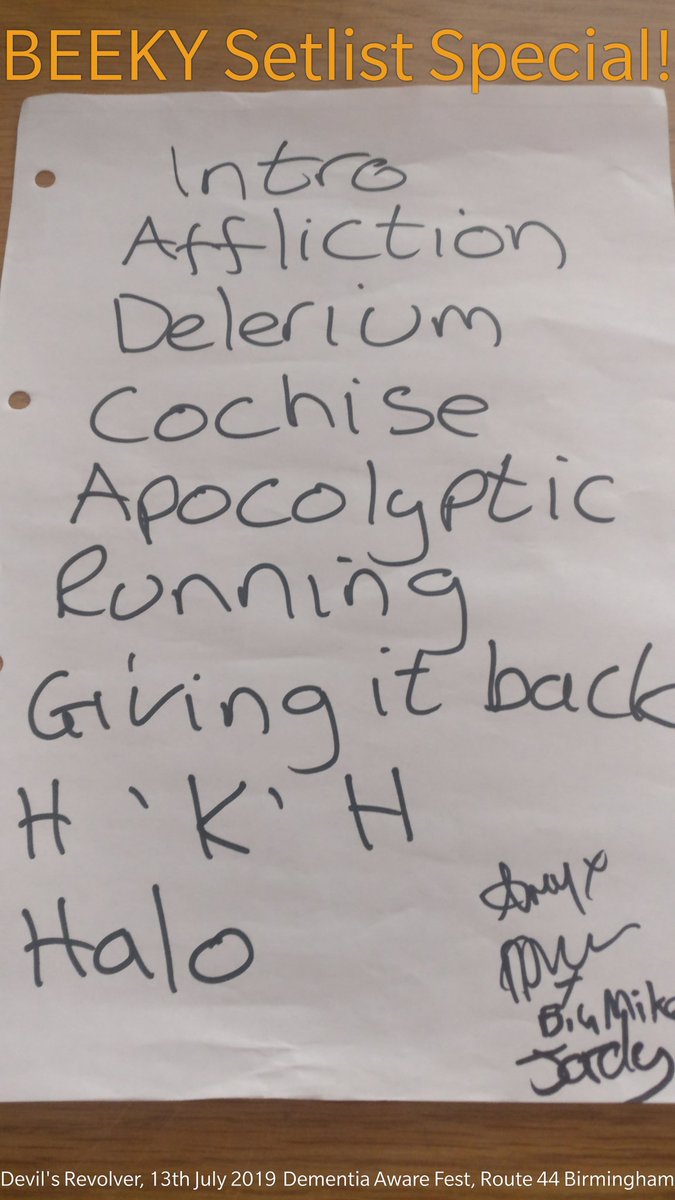 BEEKY Setlist Special!
Intro
Affliction
Delerium
Cochise
Apocolyptic
Running
Giving it back
H 'K' H
Halo
Big Mike
Jordy
Devil's Revolver, 13th July 2019 Dementia Aware Fest, Route 44 Birmingham